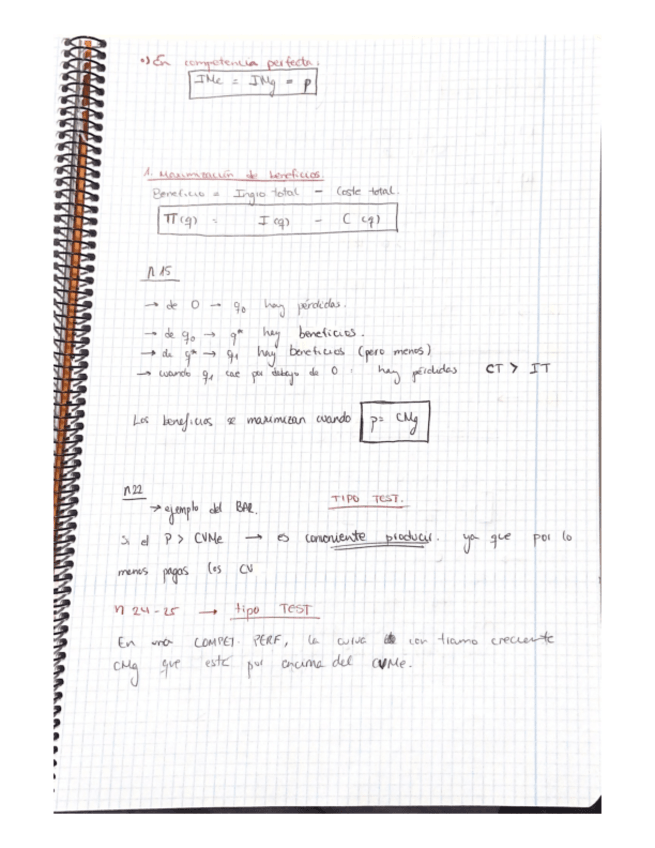 •) En competencia perfecta.
IMe = IMg = p
1. Maximización de beneficios.
Beneficio = Ingro total - Coste total.
Π(q) = I(q) - C(q)
n 15
→ de 0 → q0 hay pérdidas.
→ de q0 → q* hay beneficios.
→ de q* → q1 hay beneficios (pero menos)
→ cuando q1 cae por debajo de 0 : hay pérdidas CT > IT
Los beneficios se maximizan cuando p = CMg
n22
→ ejemplo del BAR.
TIPO TEST.
Si el P > CVMe → es conveniente producir. ya que por lo
menos pagas los CV
n 24-25 → tipo TEST
En una COMPET. PERF, la curva con tramo creciente
CMg que esté por encima del CVMe.